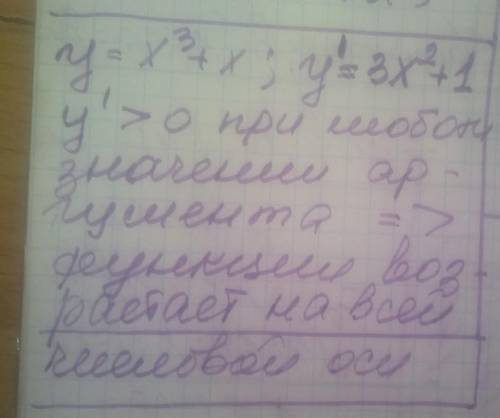 y = x³ + x ; y' = 3x² + 1
y' > 0 при любом
значении ар-
гумента =>
функция воз-
растает на всей
числовой оси